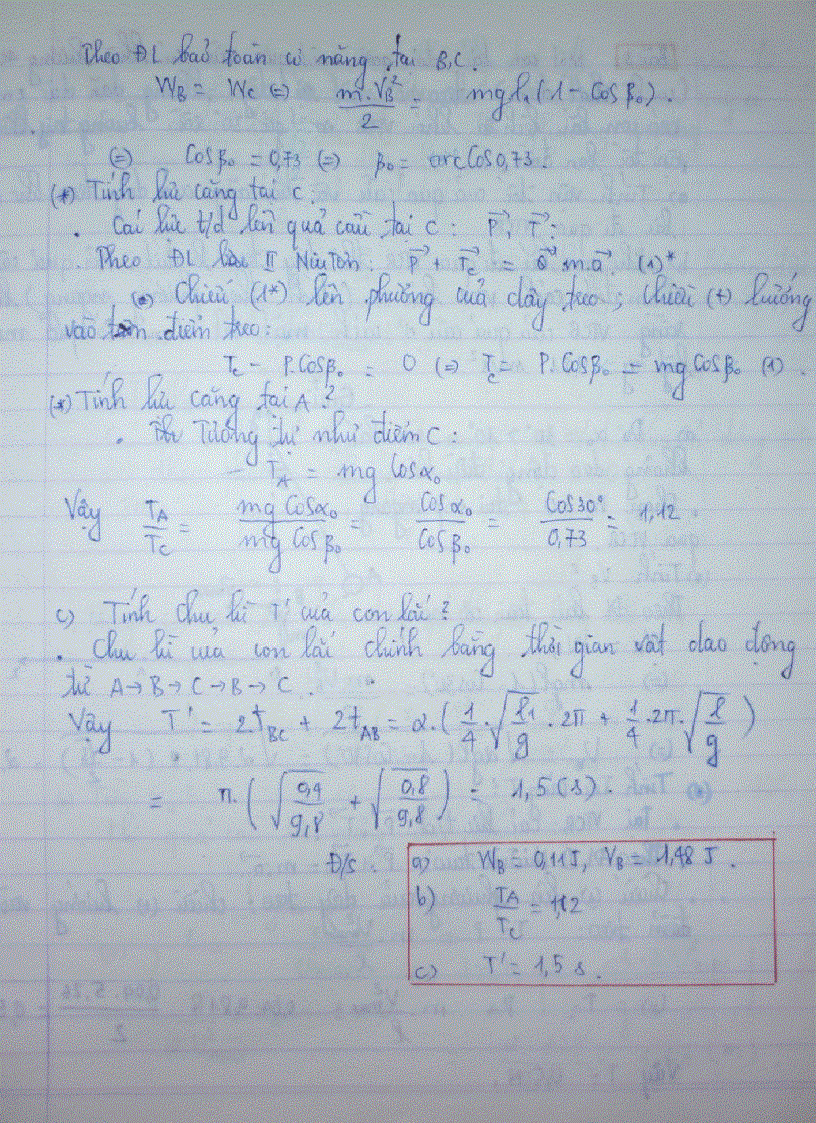 Theo ĐL bảo toàn cơ năng tại B,C.
W_B = W_C (=) m.V_B²/2 = mgl₁(1-Cosβ₀).
(=) Cosβ₀ = 0,73 (=) β₀ = arcCos0,73.
(*) Tính lực căng tại C.
. Các lực t/d lên quả cầu tại C : P⃗, T⃗ :
Theo ĐL luật II Niutơn : P⃗ + T⃗_C = m.a⃗. (1)*
(*) Chiếu (1*) lên phương của dây treo; chiều (+) hướng
vào điểm treo:
T_C - P.Cosβ₀ = 0 (=) T_C = P.Cosβ₀ = mgCosβ₀ (1).
(*) Tính lực căng tại A ?
. Tương tự như điểm C :
T_A = mg Cosα₀
Vậy T_A/T_C = mg Cosα₀/mg Cosβ₀ = Cosα₀/Cosβ₀ = Cos30°/0,73 = 1,12
c) Tính chu kì T' của con lắc ?
. Chu kì của con lắc chính bằng thời gian vật dao động
từ A→B→C→B→C.
Vậy T' = 2t_BC + 2t_AB = 2.(1/4.√(l₁/g).2π + 1/4.2π.√(l/g))
= π.(√(0,4/9,8) + √(0,8/9,8)) = 1,5(s).
Đ/s : a) W_B = 0,11J, V_B = 1,48 J.
b) T_A/T_C = 1,12
c) T' = 1,5 s.